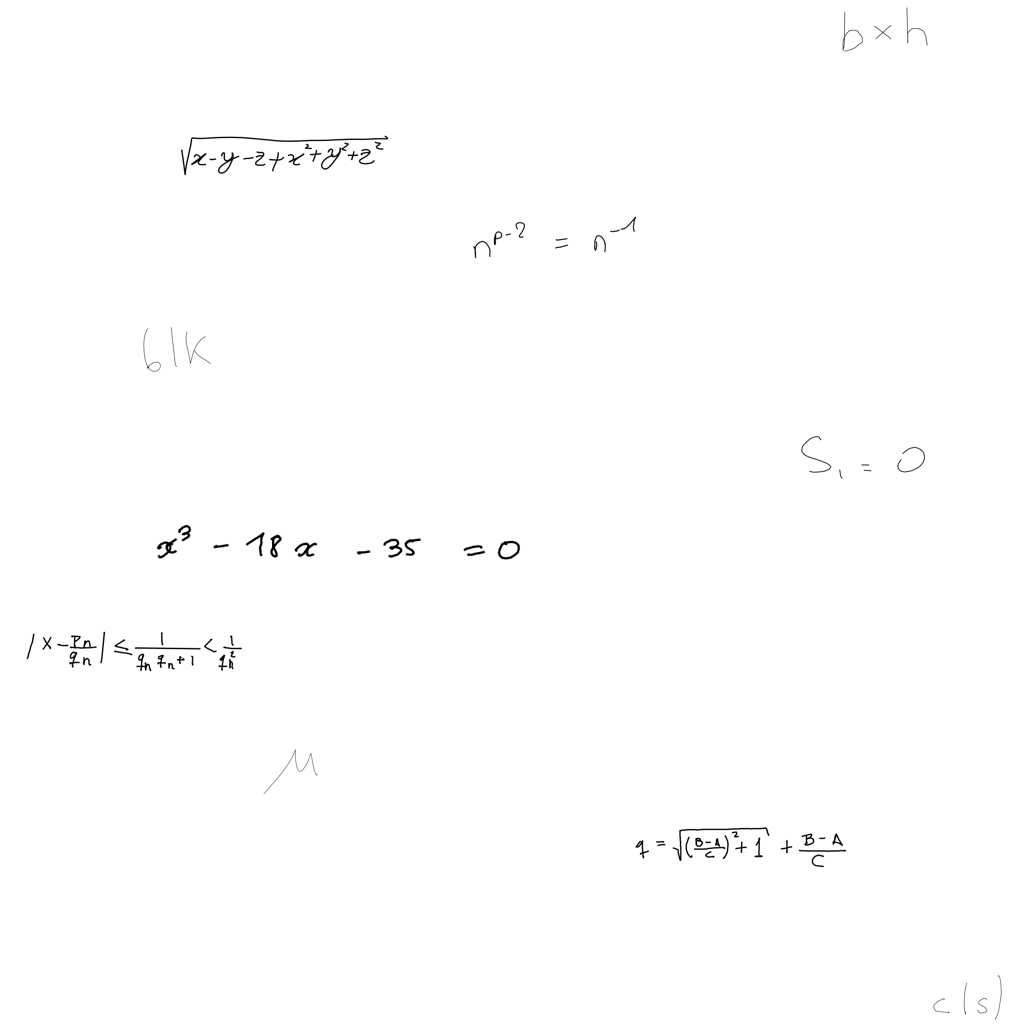 b × h
√(x-y-z+x²+y²+z²)
n^{p-2} = n^{-1}
b|k
S₁ = 0
x³ - 18x - 35 = 0
|x - p_n/q_n| ≤ 1/(q_n q_{n+1}) < 1/q_n²
μ
q = √(((B-A)/C)² + 1) + (B-A)/C
c(s)